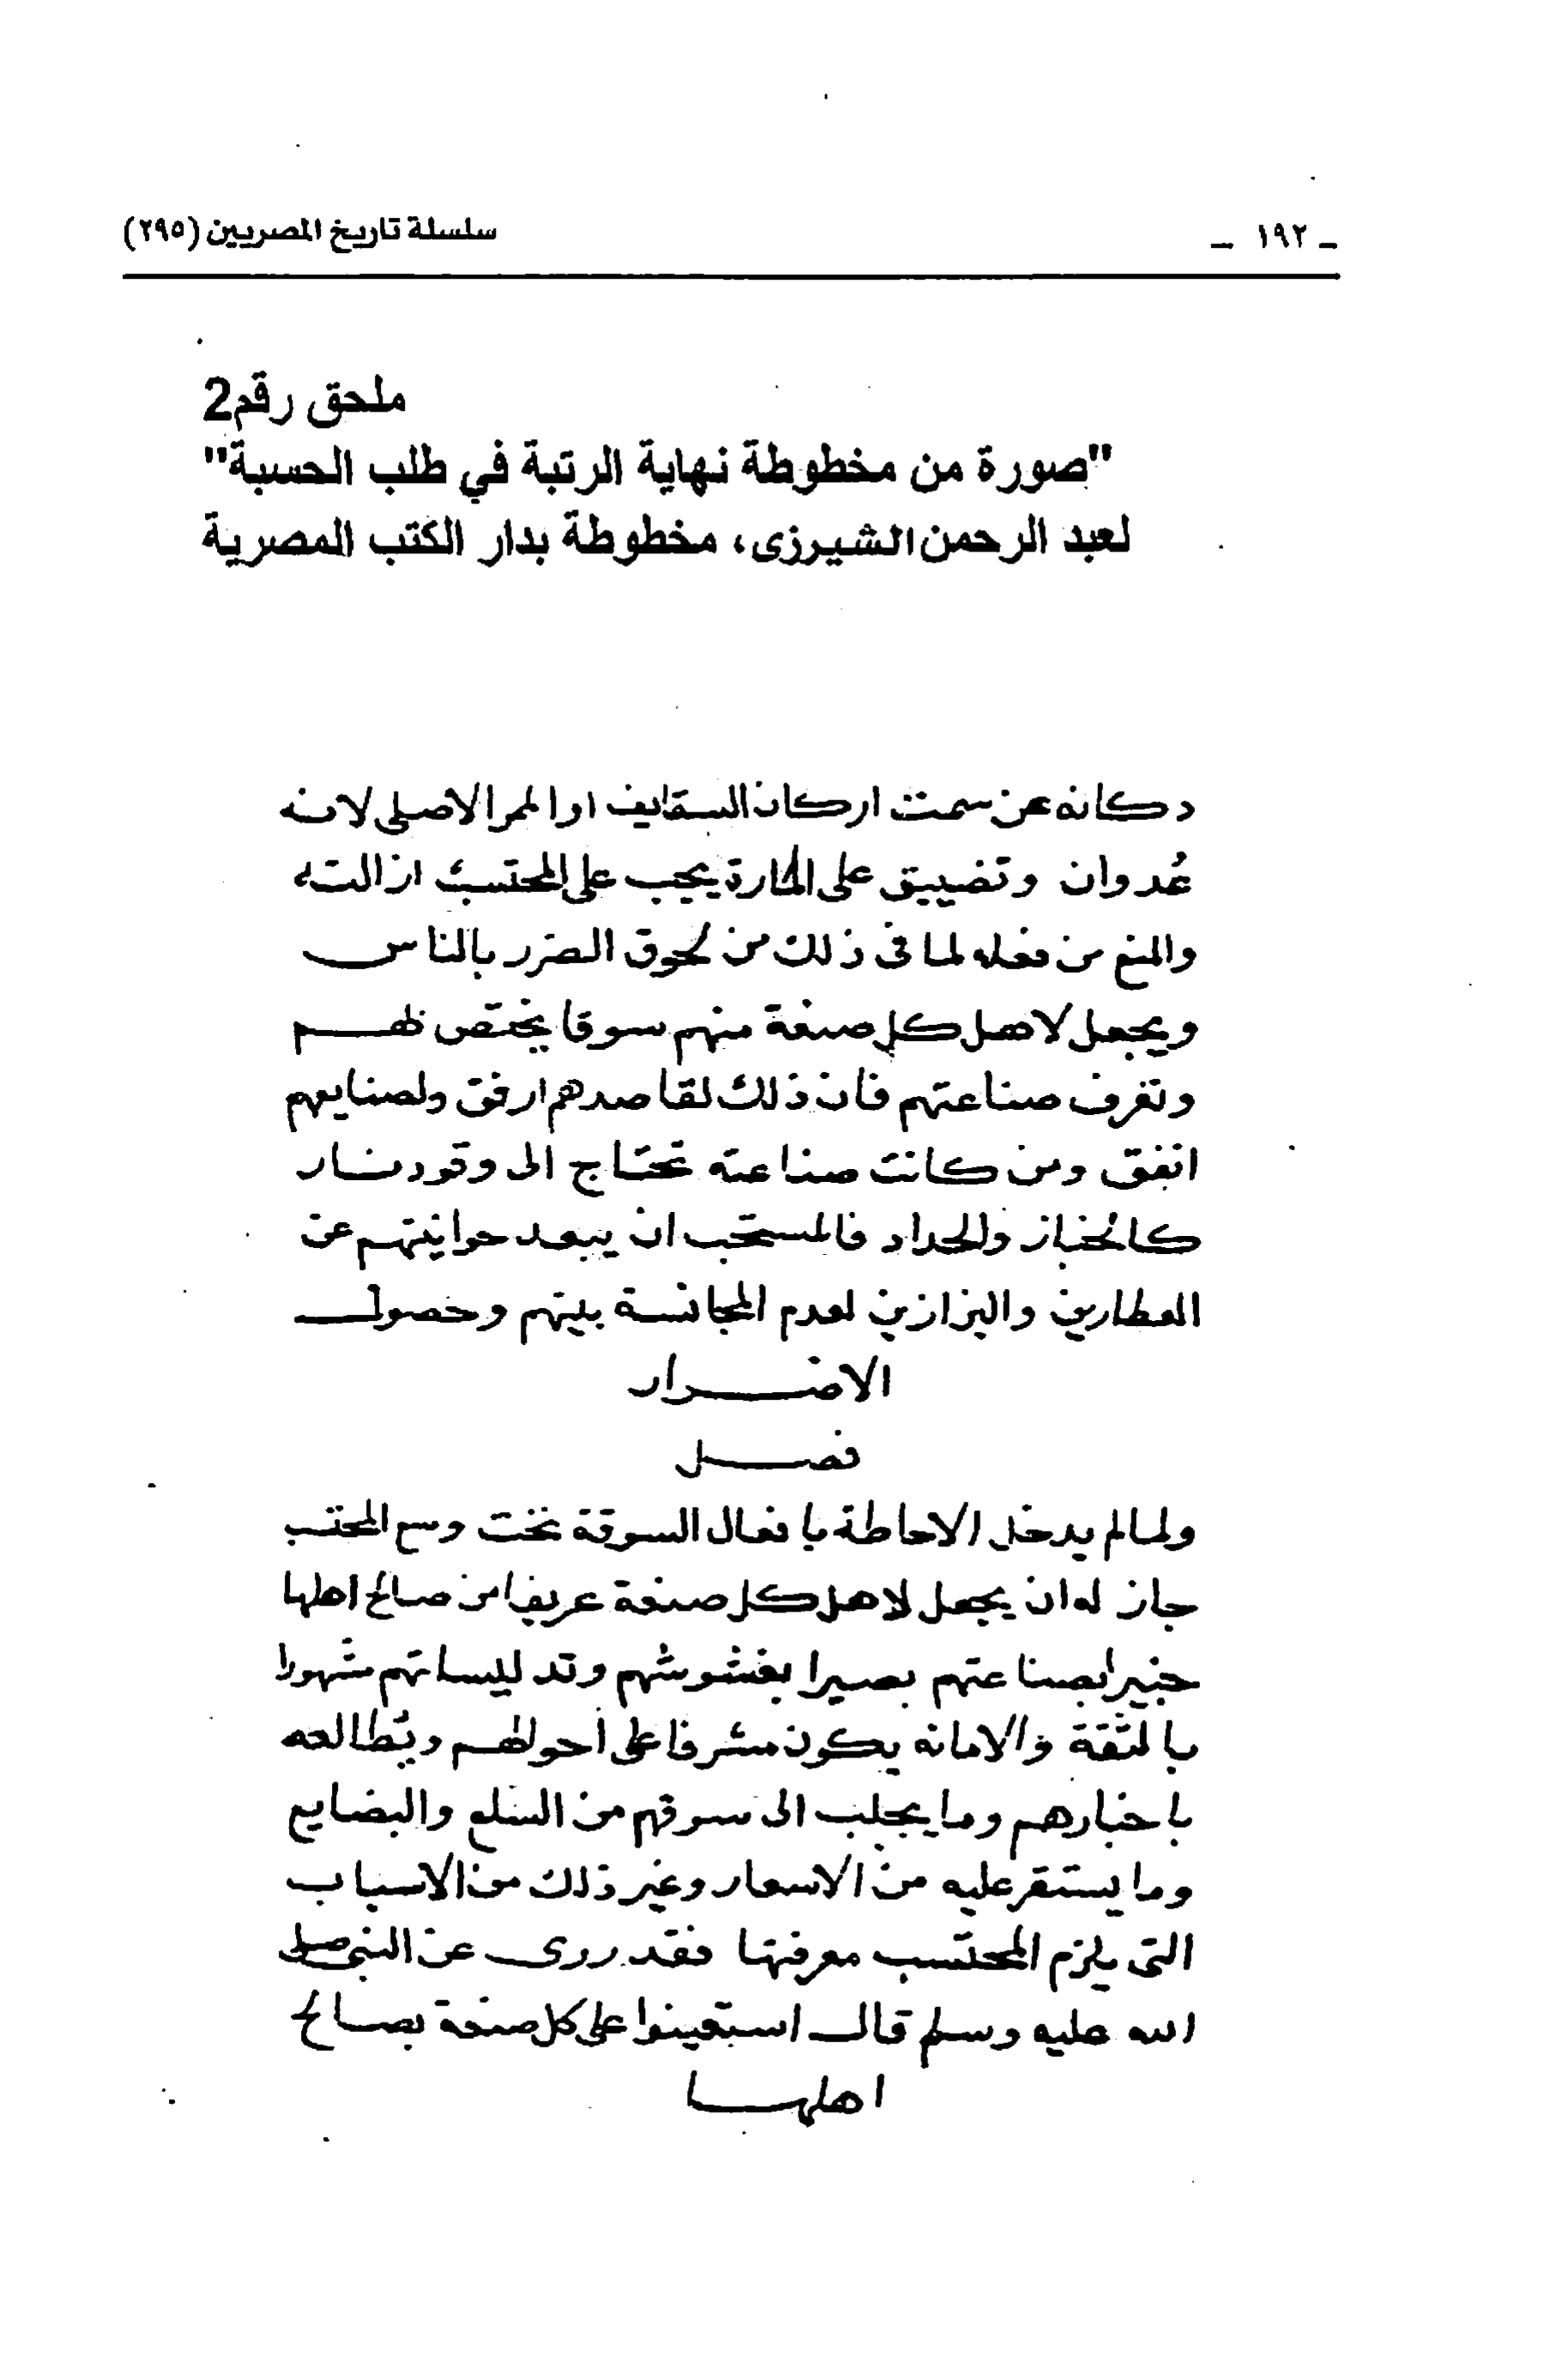 ـ ١٩٢ ـ
سلسلة تاريخ المصريين (٢٩٥)
ملحق رقم2
"صورة من مخطوطة نهاية الرتبة في طلب الحسبة"
لعبد الرحمن الشيرزى، مخطوطة بدار الكتب المصرية
دكانه عن سمت اركان السقايف او الممر الاصلى لانه
عُدوان وتضييق على المارة يجب على المحتسب ازالته
والمنع من فعله لما فى ذلك من لحوق الضرر بالناس
ويجعل لاهل كل صنعة منهم سوقا يختص لهم
وتعرف صناعتهم فان ذلك لقاصدهم ارفق ولصنايعهم
انفق ومن كانت صناعته تحتاج الى وقود نار
كالخباز والحداد فالمستحب ان يبعد حوانيتهم عن
العطارين والبزازين لعدم المجانسة بينهم وحصول
الاضرار
فصل
ولما لم يدخل الاحاطة بافعال السوقة تحت وسع المحتسب
جاز له ان يجعل لاهل كل صنعة عريفا من صالح اهلها
خبيرا بصناعتهم بصيرا بغشوشهم وتدليساتهم مشهورا
بالثقة والامانه يكون مشرفا على أحوالهم ويُطالعه
باخبارهم وما يجلب الى سوقهم من السلع والبضايع
وما يستقر عليه من الاسعار وغير ذلك من الاسباب
التى يلزم المحتسب معرفتها فقد روى عن النبى صلى
الله عليه وسلم قال استعينوا على كل صنعة بصالح
اهلها